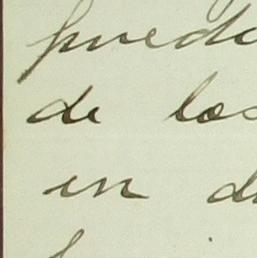 puede
de los
en d